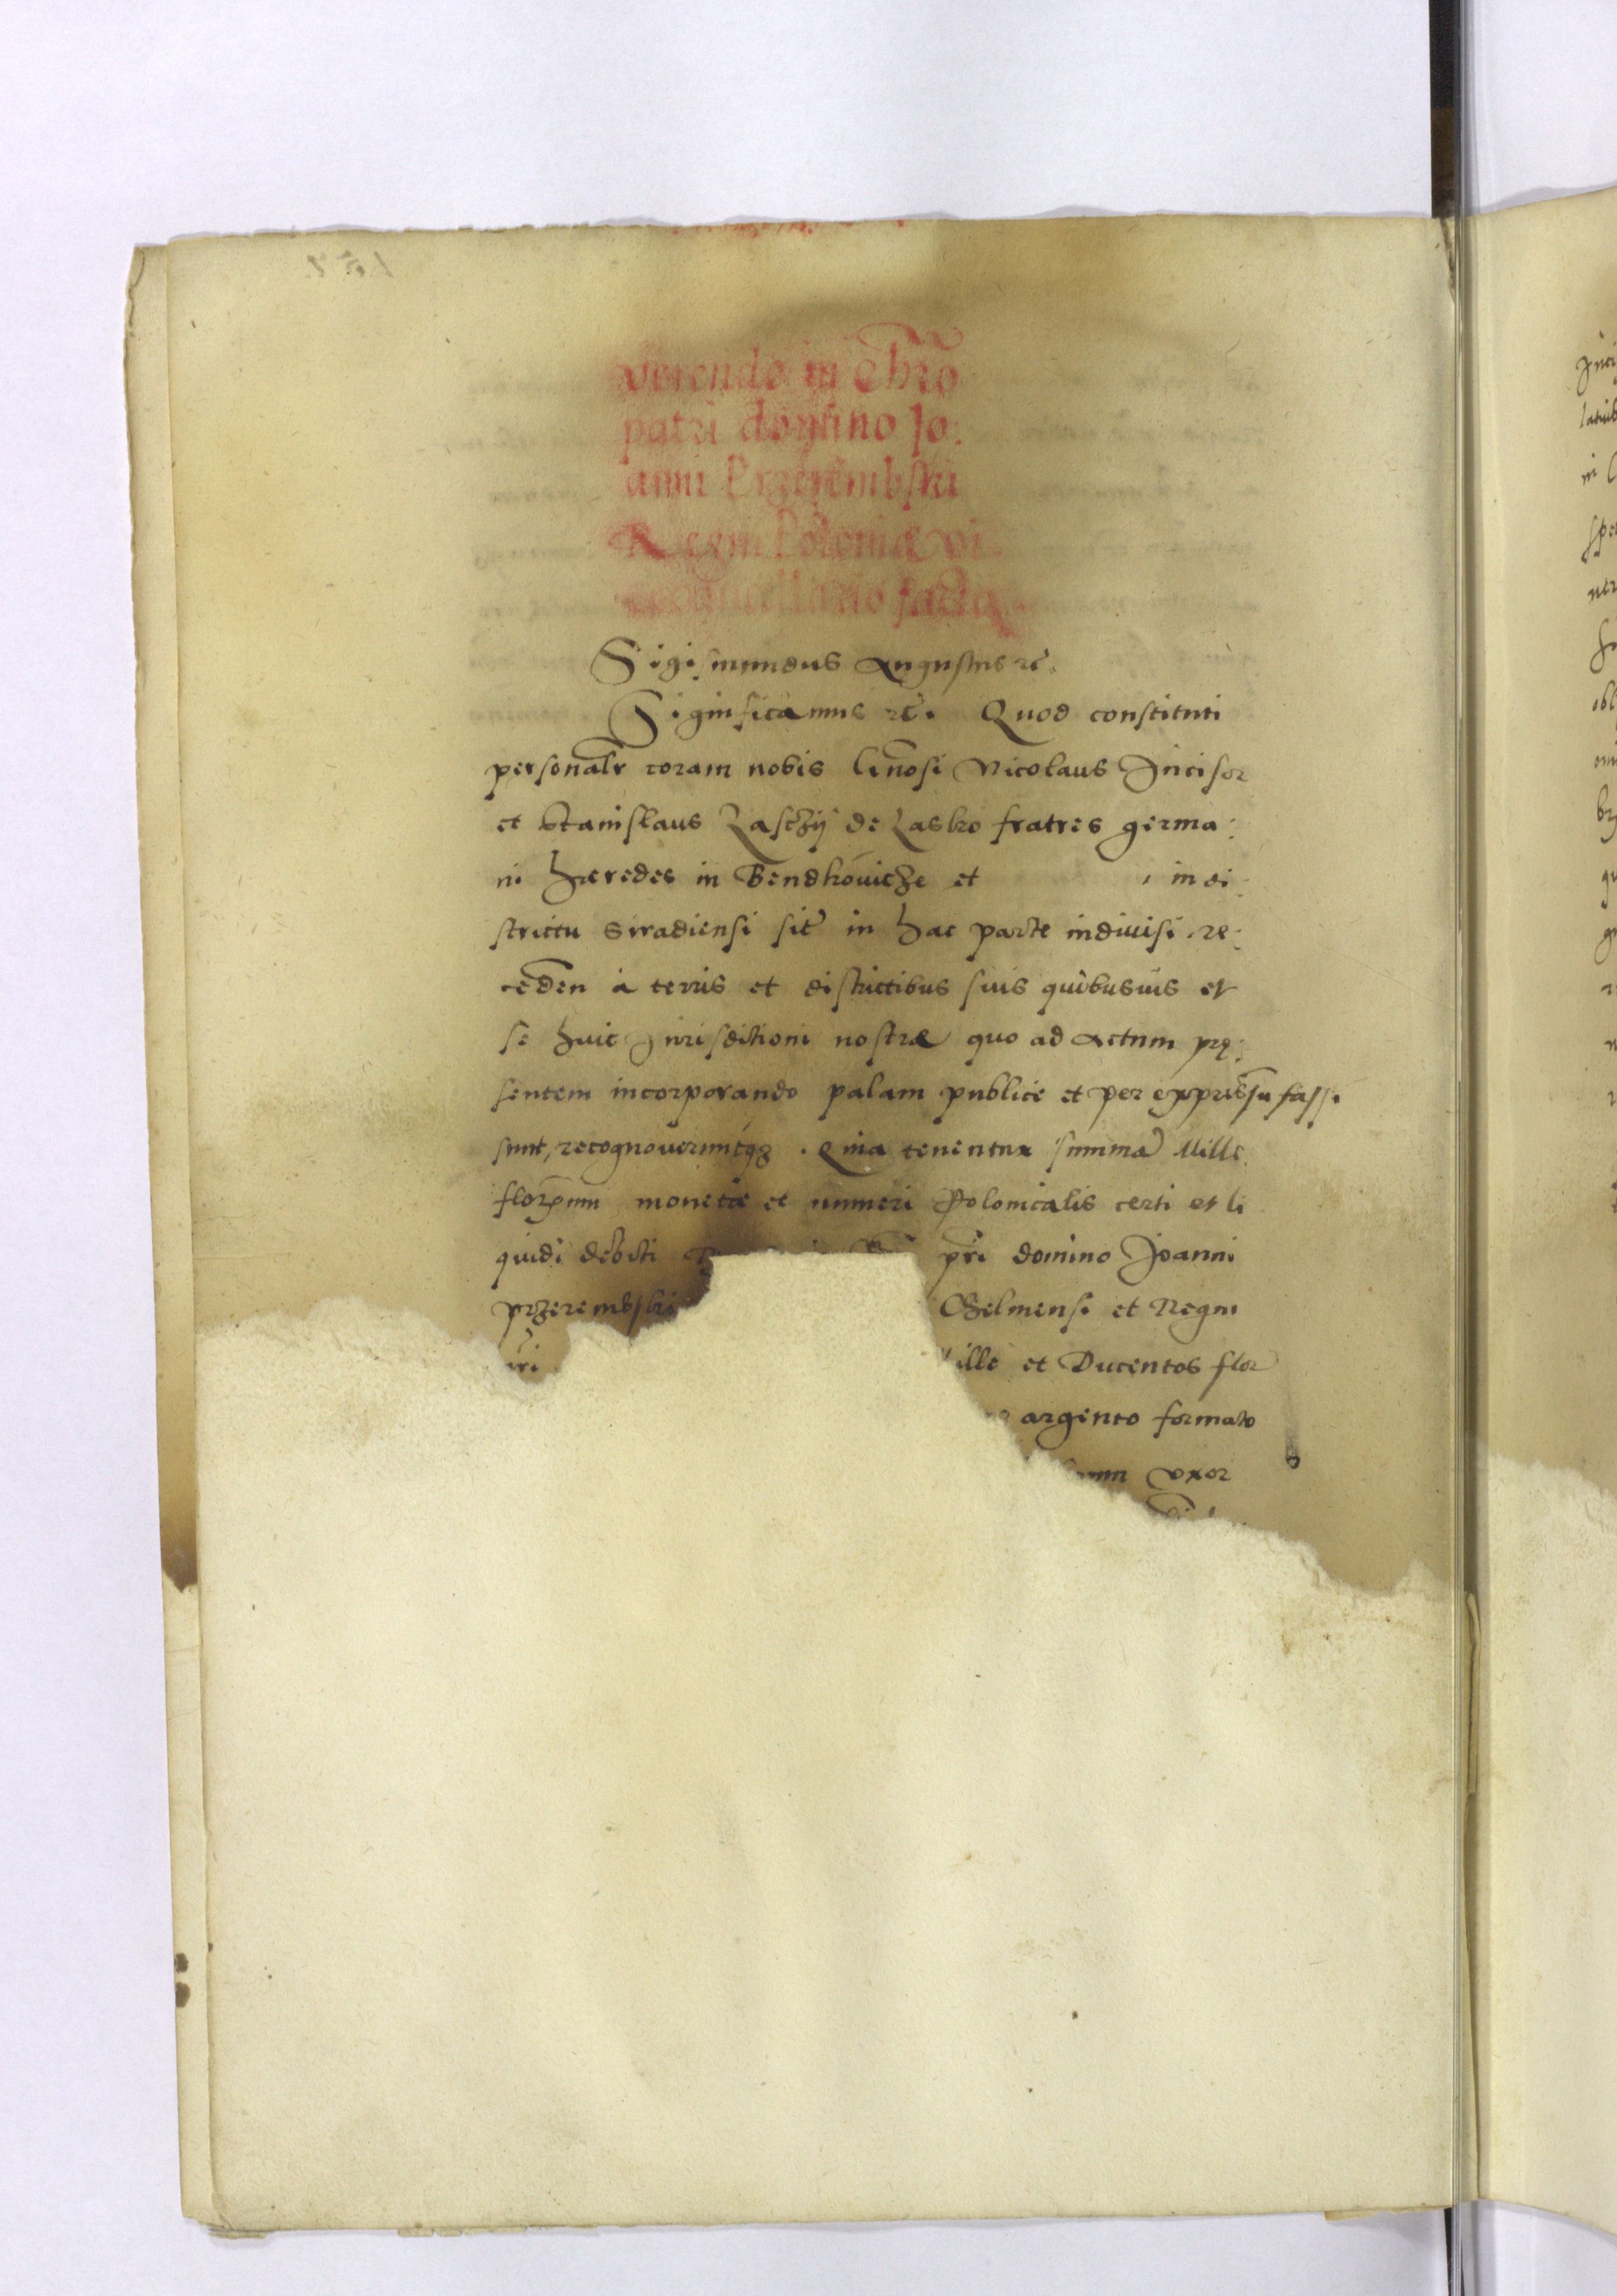 verendo in Chro
patri domino Jo:
anni Przerembski
Regni Poloniæ vi
cecancellario facta
Sigismundus Augustus rc.
Significamus rc. Quod constituti
personalr coram nobis Gnosi Nicolaus Incisor
et Stanislaus Laschÿ de Lasko fratres germa:
ni hæredes in Bendkowicze et in di:
strictu Siradiensi sit in hac parte indivisi re:
ceden à terris et districtibus suis quibusuis et
se huic Jurisditioni nostræ quo ad actum prę:
sentem incorporando palam publice et per expressu fassi
sunt, recognoveruntqz. Quia tenentur summa Mille
florenum monetæ et numeri Polonicalis certi et li
quidi debiti pri domino Joanni
przerembski Chelmensi et Regni
ille et Ducentos flor
argento formato
uxor